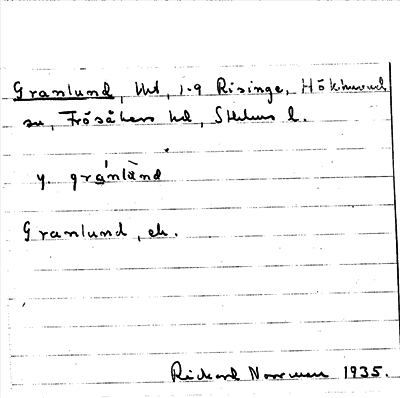 Granlund, lht, 1:9 Risinge, Hökhuvud
sn, Frösåkers hd, Sthlms l.
y. gránlànd
Granlund, ek.
Rickard Norrman 1935.